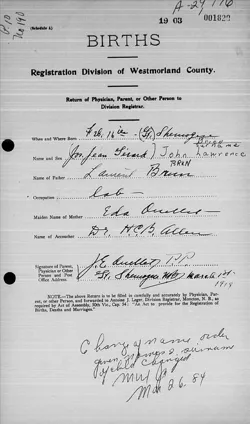 A-29776
P10
No 190
(Schedule A)
19 03
001822
BIRTHS
Registration Division of Westmorland County.
Return of Physician, Parent, or Other Person to
Division Registrar.
When and Where Born
Feb. 16th (St) Shemogue
Name and Sex
(Jos. Jean Gérard) John Lawrence
BRUN
Name of Father
Laurent Brun
Occupation
Lab
Maiden Name of Mother
Eda
Name of Accoucheur
Dr. H.C.B. Allen
Signature of Parent,
Physician or Other Person
and Post
Office Address.
P.P.
St. Shemogue NB March 1st
NOTE.—The above Return is to be filled in carefully and accurately by Physician, Parent,
or other Person, and forwarded to Antoine J. Leger, Division Registrar, Moncton, N. B., as
required by Act of Assembly, 50th Vic., Cap. 54; "An Act to provide for the Registration of
Births, Deaths and Marriages."
Change of name order
given names & surname
of child changed
Mar 26. 84